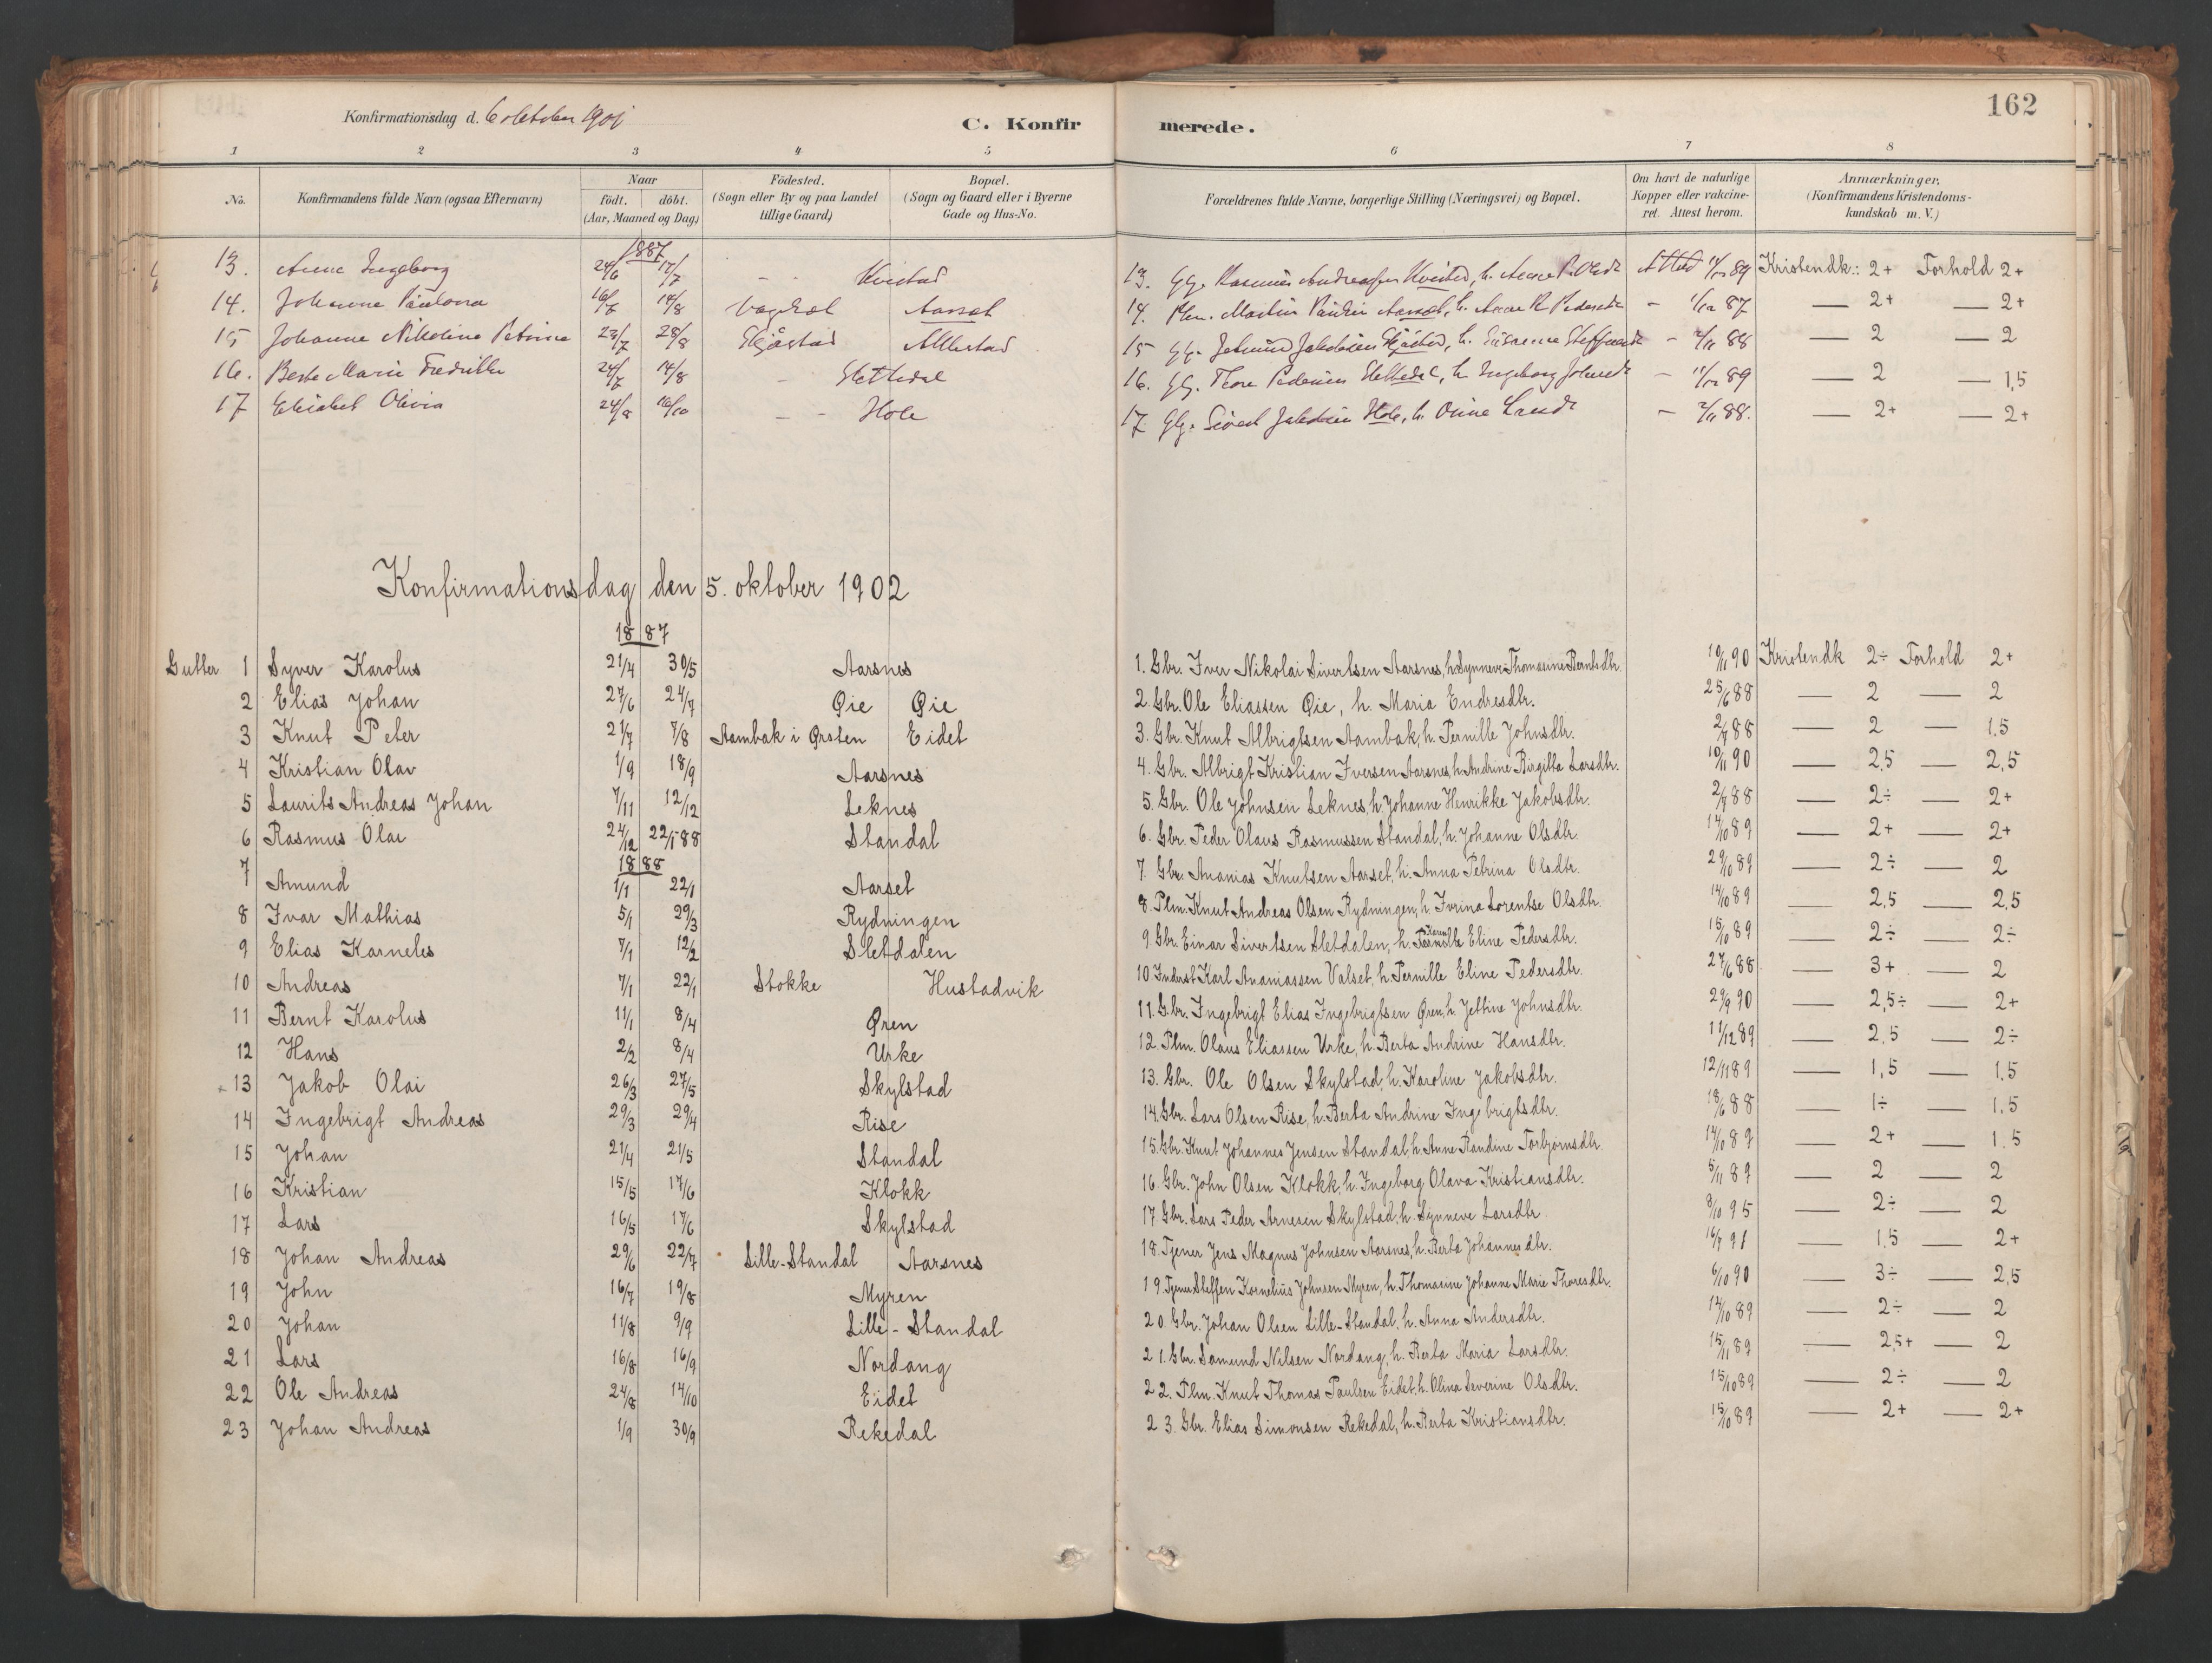 162
Konfirmationsdag d. 6 oktober 1901
C. Konfirmerede.
1 2 3 4 5 6 7 8
No. Konfirmandens fulde Navn (ogsaa Efternavn) Naar födt. döbt. (Aar, Maaned og Dag) Födested. (Sogn eller By og paa Landet tillige Gaard) Bopæl. (Sogn og Gaard eller i Byerne Gade og Hus-No. Forældrenes fulde Navne, borgerlige Stilling (Næringsvei) og Bopæl. Om havt de naturlige Kopper eller vakcineret. Attest herom. Anmærkninger. (Konfirmandens Kristendomskundskab m. V.)
1887
13. Anne Ingeborg 24/6 17/7 - - Kvistad 13. Gg. Rasmus Andreassen Kvistad, h. Anne P. Olsdr Attest 89 Kristendk.: 2+ Forhold 2+
14. Johanne Paulona 16/7 14/8 Aarset 14. Plm. Martin Aarset, h. Anne R. Pedersdr - 1/12 87 — 2+ — 2+
15 Johanne Nikoline Petrine 23/7 28/8 Skjåstad 15 Gg. Skjåstad, h. Susanne - 2/11 88 — 2 — 2
16. Berte Marie Fredrikke 24/7 14/8 - Slettedal 16. Gg. Thore Pedersen Slettedal, h. Ingeborg Johnsdr - 11/12 89 — 2 — 1,5
17 Elisabet Olivia 24/8 16/10 - - Hole 17. Gg. Sivert Jakobsen Hole, h. Oline Larsdr - 2/11 88. — 2+ — 2+
Konfirmationsdag den 5. oktober 1902
1887
Gutter 1 Syver Karolus 21/4 30/5 Aarsnes 1. Gbr. Iver Nikolai Sivertsen Aarsnes, h. Synneve Thomasine Berntsdtr. 10/11 90 Kristendk 2÷ Forhold 2+
2 Elias Johan 27/6 24/7 Øie Øie 2. Gbr. Ole Eliassen Øie, h. Maria Endresdtr. 25/6 88 — 2 — 2
3 Knut Peter 21/7 7/8 Aambak i Ørsten Eidet 3. Gbr. Knut Albrigtsen Aambak, h. Pernille Johnsdtr. 2/7 88 — 2 — 1,5
4 Kristian Olav 1/9 18/9 Aarsnes 4. Gbr. Albrigt Kristian Iversen Aarsnes, h. Andrine Birgitta Larsdtr. 10/11 90 — 2,5 — 2,5
5 Laurits Andreas Johan 7/11 12/12 Leknes 5. Gbr. Ole Johnsen Leknes, h. Johanne Henrikke Jakobsdtr. 2/7 88 — 2÷ — 2+
6 Rasmus Olai 24/12 22/1 88 Standal 6. Gbr. Peder Olaus Rasmussen Standal, h. Johanne Olsdtr. 14/10 89 — 2+ — 2+
1888
7 Amund 1/1 22/1 Aarset 7. Gbr. Ananias Knutsen Aarset, h. Anna Petrina Olsdtr. 29/10 89 — 2÷ — 2
8 Ivar Mathias 5/1 29/3 Rydningen 8. Plm. Knut Andreas Olsen Rydningen, h. Ivrina Lorentse Olsdtr. 14/10 89 — 2,5 — 2,5
9 Elias Karneles 7/1 12/2 Sletdalen 9. Gbr. Einar Sivertsen Sletdalen, h. Eline Pedersdtr. 15/10 89 — 2÷ — 2÷
10 Andreas 7/1 22/1 Stokke Hustadvik 10. Inderst Karl Ananiassen Valset, h. Pernille Eline Pedersdtr. 27/6 88 — 3+ — 2
11 Bernt Karolus 11/1 8/4 Øren 11. Gbr. Ingebrigt Elias Ingebrigtsen Øren, h. Jettine Johnsdtr. 29/9 90 — 2,5÷ — 2+
12 Hans 2/2 8/4 Urke 12. Plm. Olaus Eliassen Urke, h. Berta Andrine Hansdtr. 11/12 89 — 2,5 — 2÷
13 Jakob Olai 26/3 27/5 Skylstad 13. Gbr. Ole Olsen Skylstad, h. Karoline Jakobsdtr. 12/11 89 — 1,5 — 1,5
14 Ingebrigt Andreas 29/3 29/4 Rise 14. Gbr. Lars Olsen Rise, h. Berta Andrine Ingebrigtsdtr. 18/6 88 — 1÷ — 1,5
15 Johan 21/4 21/5 Standal 15. Gbr. Knut Johannes Jensen Standal, h. Anne Randine Torbjørnsdtr. 14/10 89 — 2+ — 1,5
16 Kristian 15/5 17/6 Klokk 16. Gbr. John Olsen Klokk, h. Ingeborg Olava Kristiansdtr. 5/11 89 — 2 — 2
17 Lars 16/5 17/6 Skylstad 17. Gbr. Lars Peder Arnesen Skylstad, h. Synneve Larsdtr 8/10 95 — 2÷ — 2
18 Johan Andreas 29/6 22/7 Lille-Standal Aarsnes 18. Tjener Jens Magnus Johnsen Aarsnes, h. Berta Johannesdtr. 16/9 91 — 1,5 — 2+
19 John 16/7 19/8 Myren 19. Tjener Steffen Kornelius Johnsen Myren, h. Thomasine Johanne Marie Thoresdtr. 6/10 90 — 3÷ — 2,5
20 Johan 11/8 9/9 Lille-Standal 20. Gbr. Johan Olsen Lille-Standal, h. Anna Andersdtr. 14/10 89 — 2÷ — 2
21 Lars 16/8 16/9 Nordang 21. Gbr. Samund Nilsen Nordang, h. Berta Maria Larsdtr. 15/11 89 — 2,5+ — 2
22 Ole Andreas 24/8 14/10 Eidet 22. Plm. Knut Thomas Paulsen Eidet, h. Olina Severine Olsdtr. 15/10 89 — 2÷ — 2
23 Johan Andreas 1/9 30/9 Rekedal 23. Gbr. Elias Simonsen Rekedal, h. Berta Kristiansdtr. 15/10 89 — 2+ — 2+